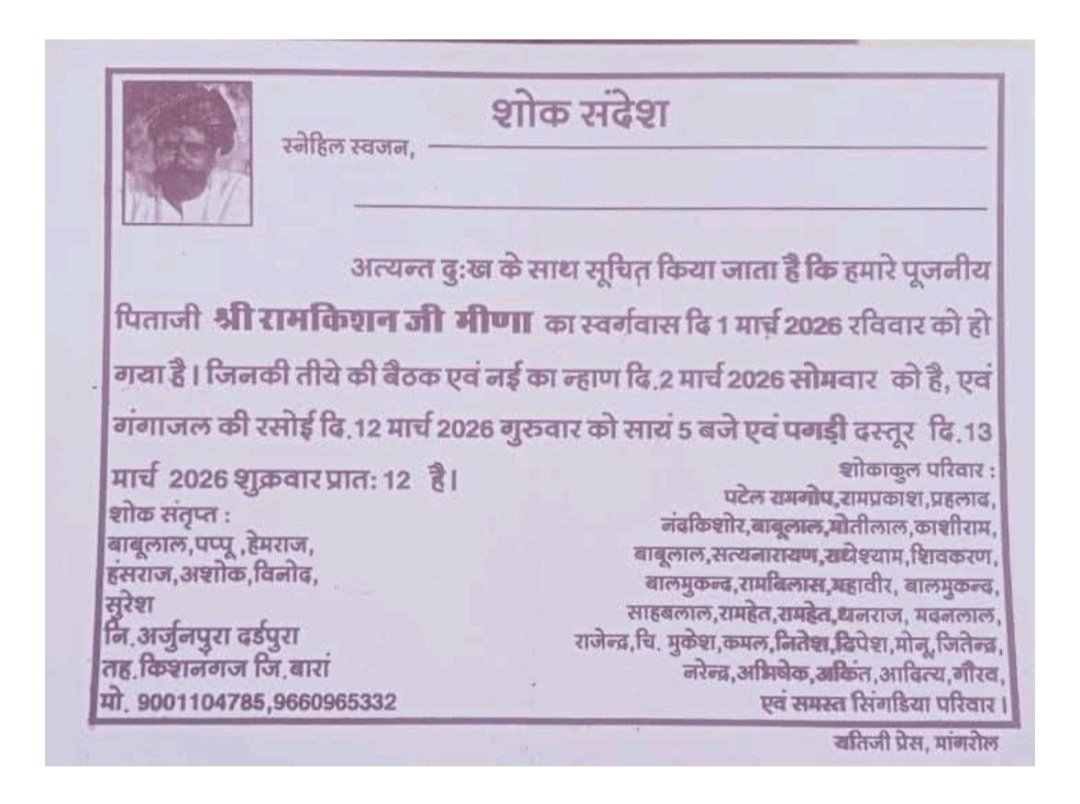 शोक संदेश
स्नेहिल स्वजन,
अत्यन्त दुःख के साथ सूचित किया जाता है कि हमारे पूजनीय
पिताजी श्री रामकिशन जी मीणा का स्वर्गवास दि 1 मार्च 2026 रविवार को हो
गया है। जिनकी तीये की बैठक एवं नई का न्हाण दि.2 मार्च 2026 सोमवार को है, एवं
गंगाजल की रसोई दि.12 मार्च 2026 गुरुवार को सायं 5 बजे एवं पगड़ी दस्तूर दि.13
मार्च 2026 शुक्रवार प्रातः 12 है।
शोक संतृप्त :
बाबूलाल,पप्पू ,हेमराज,
हंसराज,अशोक,विनोद,
सुरेश
नि.अर्जुनपुरा दर्डपुरा
तह.किशनगज जि.बारां
मो. 9001104785,9660965332
शोकाकुल परिवार :
पटेल रामगोप,रामप्रकाश,प्रहलाद,
नंदकिशोर,बाबूलाल,मोतीलाल,काशीराम,
बाबूलाल,सत्यनारायण,राधेश्याम,शिवकरण,
बालमुकन्द,रामबिलास,महावीर, बालमुकन्द,
साहबलाल,रामहेत,रामहेत,धनराज, मदनलाल,
राजेन्द्र,चि. मुकेश,कमल,नितेश,दिपेश,मोनू,जितेन्द्र,
नरेन्द्र,अभिषेक,अकिंत,आदित्य,गौरव,
एवं समस्त सिंगडिया परिवार।
यतिजी प्रेस, मांगरोल